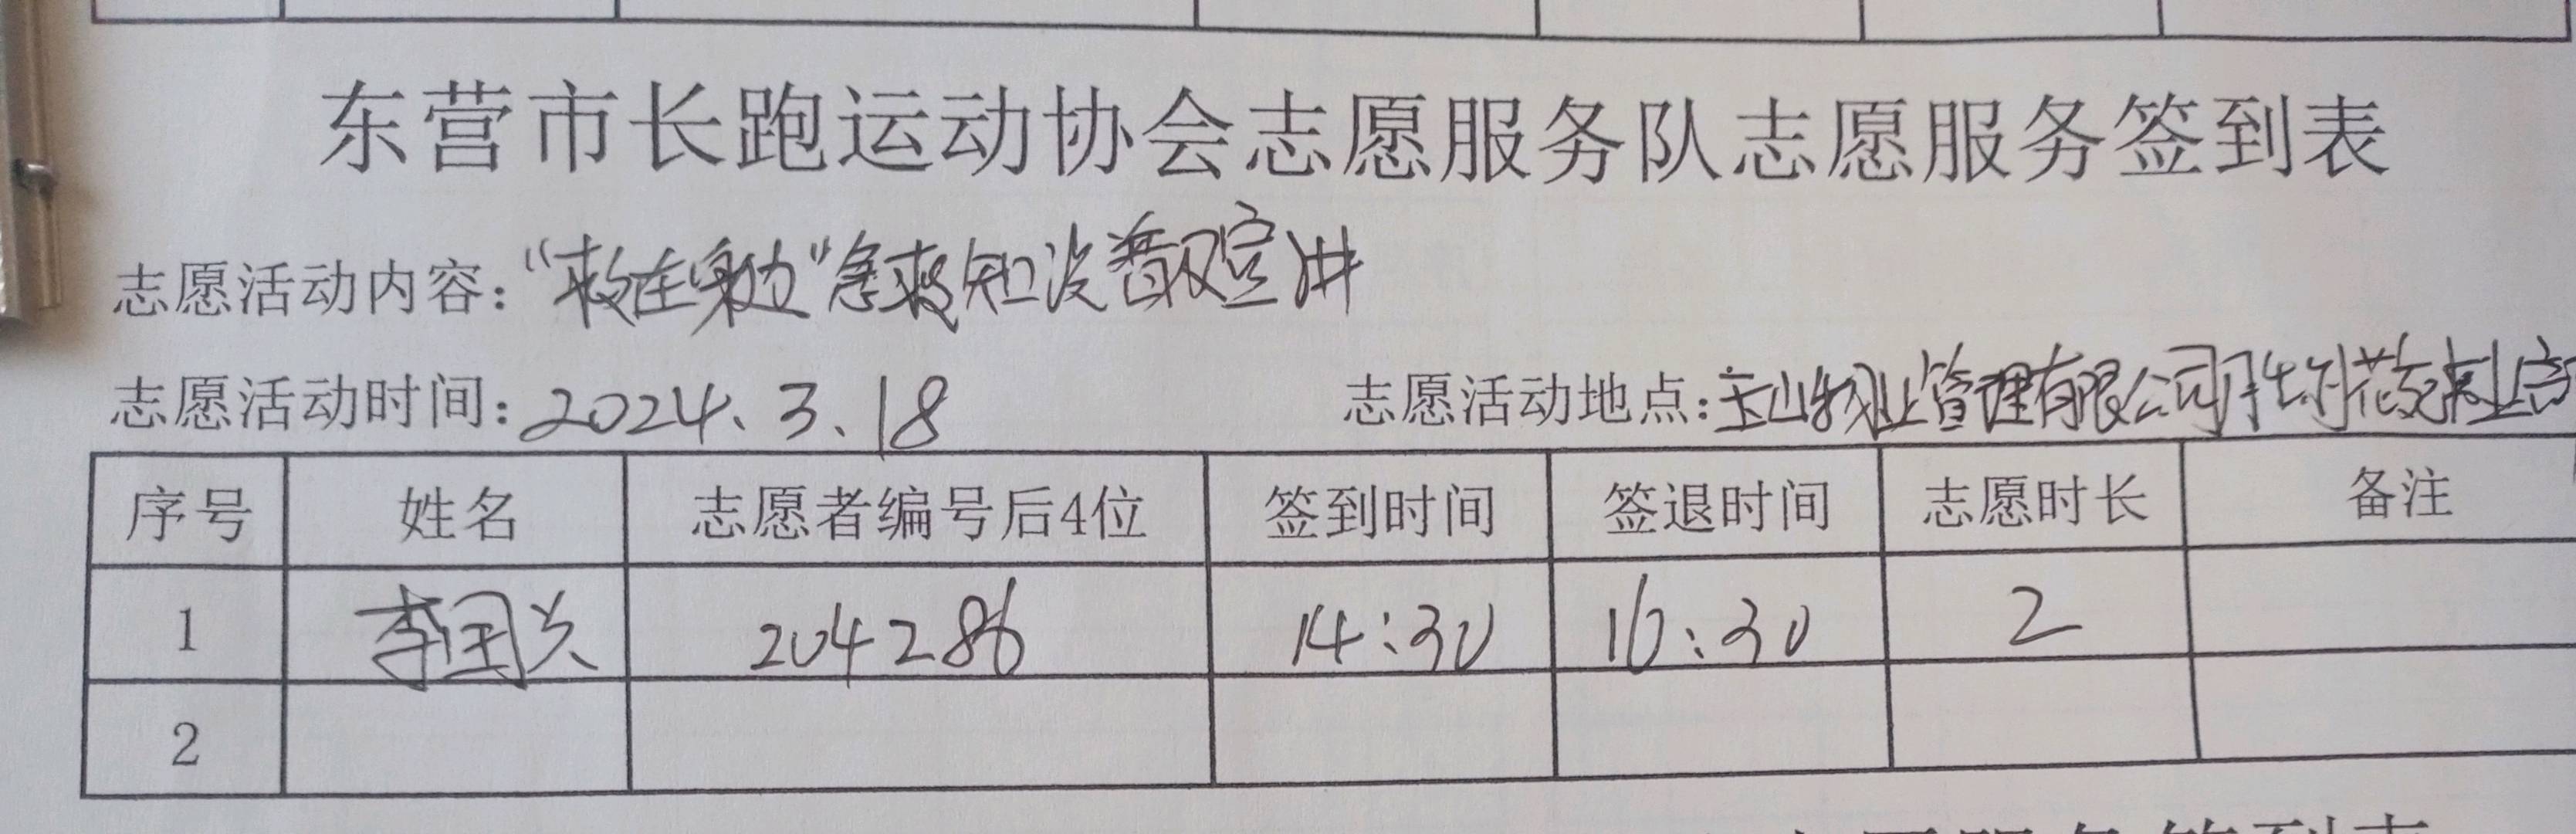 东营市长跑运动协会志愿服务队志愿服务签到表
志愿活动内容：“救在身边”急救知识普及宣讲
志愿活动时间：2024.3.18 志愿活动地点：宝山物业管理有限公司
序号 姓名 志愿者编号后4位 签到时间 签退时间 志愿时长 备注
1 李国兴 204286 14:30 16:30 2
2